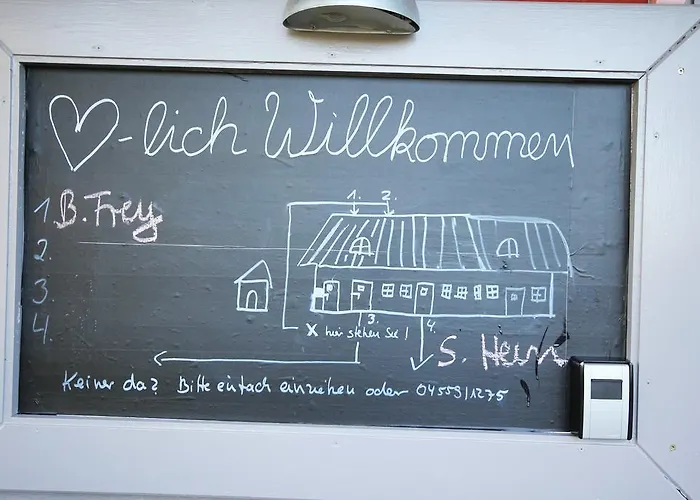 ♡-lich Willkommen
1 B. Frey
2.
3.
4.
1. 2.
3. 4.
X hier stehen Sie!
S.
Keiner da? Bitte einfach einziehen oder 04559/1275